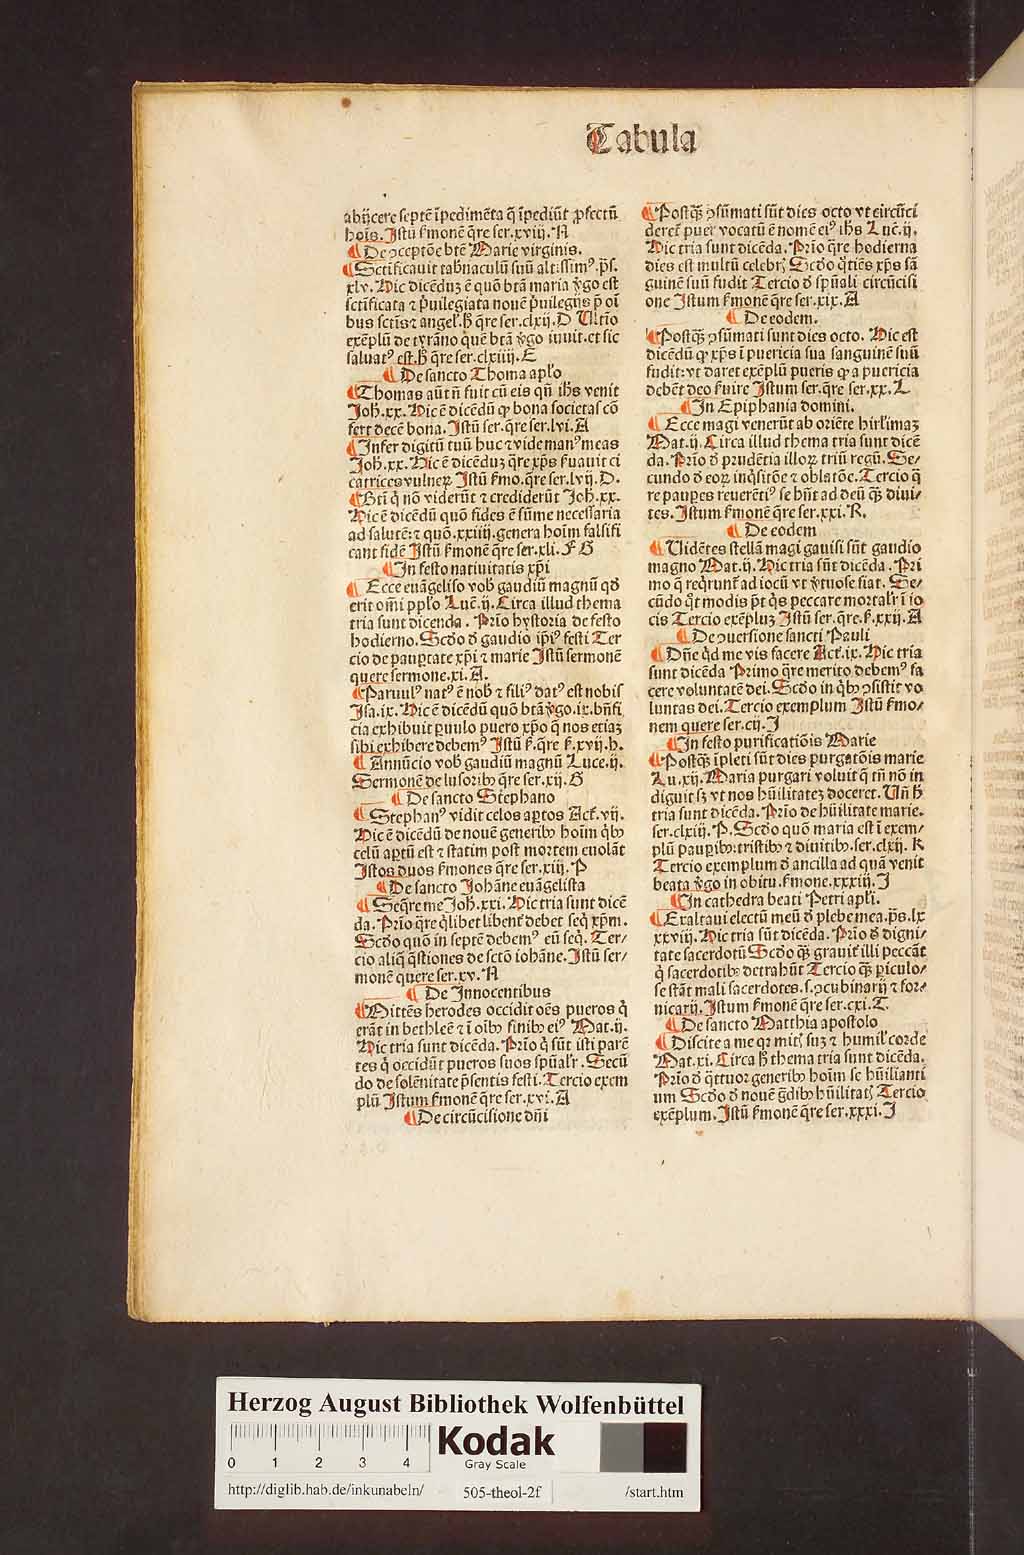 Tabula
abijcere septē īpedimēta q̄ īpediūt ꝓfectū
hoīs. Istū ẜmonē q̄re ser.xviij. N
¶ De ↄceptōe btē Marie virginis.
¶ Sctificauit tabnaculū suū altissimꝰ. p̄s.
xlv. Hic dicēduz ē quō btā maria v̓go est
sctificata ⁊ p̓uilegiata nouē p̓uilegijs p̄ oī
bus sctīs ⁊ angeł. ꝧ q̄re ser.clxij. D Vltīo
exēplū de tyrāno quē btā v̓go iuuit. et sic
saluatꝰ est. ꝧ q̄re ser.clxiiij. E
¶ De sancto Thoma apło
¶ Thomas aūt nō̄ fuit cū eis qn̄ ihs venit
Joꝧ.xx. Hic ē dicēdū ꝙ bona societas cō
fert decē bona. Istū ser.q̄re ser.lvi. A
¶ Infer digitū tuū huc ⁊ vide manꝰ meas
Joꝧ.xx. Hic ē dicēduz q̄re xp̄s ẜuauit ci
catrices vulneꝝ Istū ẜmo.q̄re ser.lvij. D.
¶ Btī q̓ nō viderūt ⁊ crediderūt Joꝧ.xx.
Hic ē dicēdū quō fides ē sūme necessaria
ad salutē: ⁊ quō.xxiiij.genera hoīm falsifi
cant fidē Istū ẜmonē q̄re ser.xli. F G
¶ In festo natiuitatis xp̄i
¶ Ecce euāgeliso vob̓ gaudiū magnū qd̓
erit om̄i pplo Luē.ij. Circa illud thema
tria sunt dicenda. Prīo hystoria de festo
hodierno. Scd̓o d̓ gaudio ip̄iꝰ festi Ter
cio de paupertate xp̄i ⁊ marie Istū sermonē
quere sermone.xi. A.
¶ Paruulꝰ natꝰ ē nob̓ ⁊ filiꝰ datꝰ est nobis
Isa.ix. Hic ē dicēdū quō btā v̓go.ix.bn̄fi
cia exhibuit puulo puero xp̄o q̄ nos etiaz
sibi exhibere debemꝰ Istū ẜ.q̄re ẜ.xvij. h.
¶ Annūcio vob̓ gaudiū magnū Luce.ij.
Sermonē de lusorib⁊ q̄re ser.xij. G
¶ De sancto Stephano
¶ Stephanꝰ vidit celos aꝑtos Act̓.vij.
Hic ē dicēdū de nouē generib⁊ hoīm q̓b⁊
celū aꝑtū est ⁊ statim post mortem euolāt
Istos duos ẜmones q̄re ser.xiij. P
¶ De sancto Johāne euāgelista
¶ Seq̄re me Joꝧ.xxi. Hic tria sunt dicē
da. Prīo q̄re q̓libet libent̓ debet seq̓ xp̄m.
Scd̓o quō in septē debemꝰ eū seq̓. Ter/
cio aliq̄ q̄stiones de sctō iohāne. Istū ser/
monē quere ser.xv. N
¶ De Innocentibus
¶ Mittēs herodes occidit oēs pueros q̓
erāt in bethleē ⁊ ī oīb⁊ finib⁊ eiꝰ Mat.ij.
Hic tria sunt dicēda. Prīo q̓ sūt isti parē
tes q̓ occidūt pueros suos spūalr̓. Secū
do de solēnitate p̄sentis festi. Tercio exem
plū Istum ẜmonē q̄re ser.xvi. A
¶ De circūcisione dn̄i
¶ Postq̄ꝫ ↄsūmati sūt dies octo vt circūci
deret̓ puer vocatū ē nomē eiꝰ ihs Luē.ij.
Hic tria sunt dicēda. Prīo q̄re hodierna
dies est multū celebr̓. Scd̓o q̄tiēs xp̄s sā
guinē suū fudit Tercio d̓ spūali circūcisi
one Istum ẜmonē q̄re ser.xix. A
¶ De eodem.
¶ Postq̄ꝫ ↄsūmati sunt dies octo. Hic est
dicēdū ꝙ xp̄s ī puericia sua sanguinē suū
fudit: vt daret exēplū pueris ꝙ a puericia
debēt deo ẜuire Istum ser.q̄re ser.xx. L
¶ In Epiphania domini.
¶ Ecce magi venerūt ab oriēte hirłimaz
Mat.ij. Circa illud thema tria sunt dicē
da. Prīo d̓ prudētia illoꝝ triū regū. Se/
cundo d̓ eoꝝ inq̓sitōe ⁊ oblatōe. Tercio q̄
re pauꝑes reuerētiꝰ se hn̄t ad deū q̄ꝫ diui/
tes. Istum ẜmonē q̄re ser.xxi. R.
¶ De eodem
¶ Uidētes stellā magi gauisi sūt gaudio
magno Mat.ij. Hic tria sūt dicēda. Pri
mo q̄ req̓runt̓ ad iocū vt v̓tuose fiat. Se/
cūdo q̄t modis p̄t q̓s peccare mortalr̓ ī io
cis Tercio exēpluz Istū ser.q̄re.ẜ.xxij. A
¶ De ↄuersione sancti Pauli
¶ Dn̄e q̓d me vis facere Act̓.ix. Hic tria
sunt dicēda Primo q̄re merito debemꝰ fa
cere voluntatē dei. Scd̓o in q̓b⁊ ↄsistit vo
luntas dei. Tercio exemplum Istū ẜmo/
nem quere ser.cij. I
¶ In festo purificatiōis Marie
¶ Postq̄ꝫ īpleti sūt dies purgatōis marie
Lu.xij. Maria purgari voluit q̄ tn̄ nō in
diguit sꝫ vt nos hūilitateꝫ doceret. Un̄ ꝧ
tria sunt dicēda. Prīo de hūilitate marie.
ser.clxiij. P. Scd̓o quō maria est ī exem/
plū pauꝑib⁊: tristib⁊ ⁊ diuitib⁊. ser.clxij. K
Tercio exemplum d̓ ancilla ad quā venit
beata v̓go in obitu. ẜmone.xxxiij. I
¶ In cathedra beati Petri apłi.
¶ Exaltaui electū meū d̓ plebe mea. p̄s.lx
xxviij. Hic tria sūt dicēda. Prīo d̓ digni/
tate sacerdotū Scd̓o q̄ꝫ grauit̓ illi peccāt
q̓ sacerdotib⁊ detrahūt Tercio q̄ꝫ ꝑiculo/
se stāt mali sacerdotes.s.ↄcubinarij ⁊ for/
nicarij. Istum ẜmonē q̄re ser.cxi. T.
¶ De sancto Matthia apostolo
¶ Discite a me qr mit̓ suꝫ ⁊ humił corde
Mat.xi. Circa ꝧ thema tria sunt dicēda.
Prīo d̓ q̄ttuor generib⁊ hoīm se hūilianti
um Scd̓o d̓ nouē g̓dib⁊ hūilitat̓ Tercio
exēplum. Istū ẜmonē q̄re ser.xxxi. I
Herzog August Bibliothek Wolfenbüttel
0 1 2 3 4
Kodak
Gray Scale
http://diglib.hab.de/inkunabeln/ 505-theol-2f /start.htm